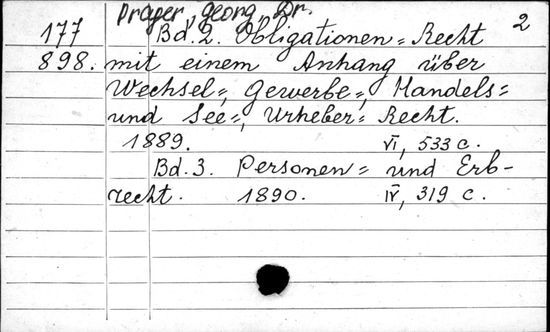 Prager, Georg, Dr. 2
177 Bd. 2. Obligationen= Recht
898. mit einem Anhang über
Wechsel=, Gewerbe=, Handels=
und See=, Urheber= Recht.
1889. VI, 533 c.
Bd. 3. Personen= und Erb-
recht. 1890. IV, 319 c.